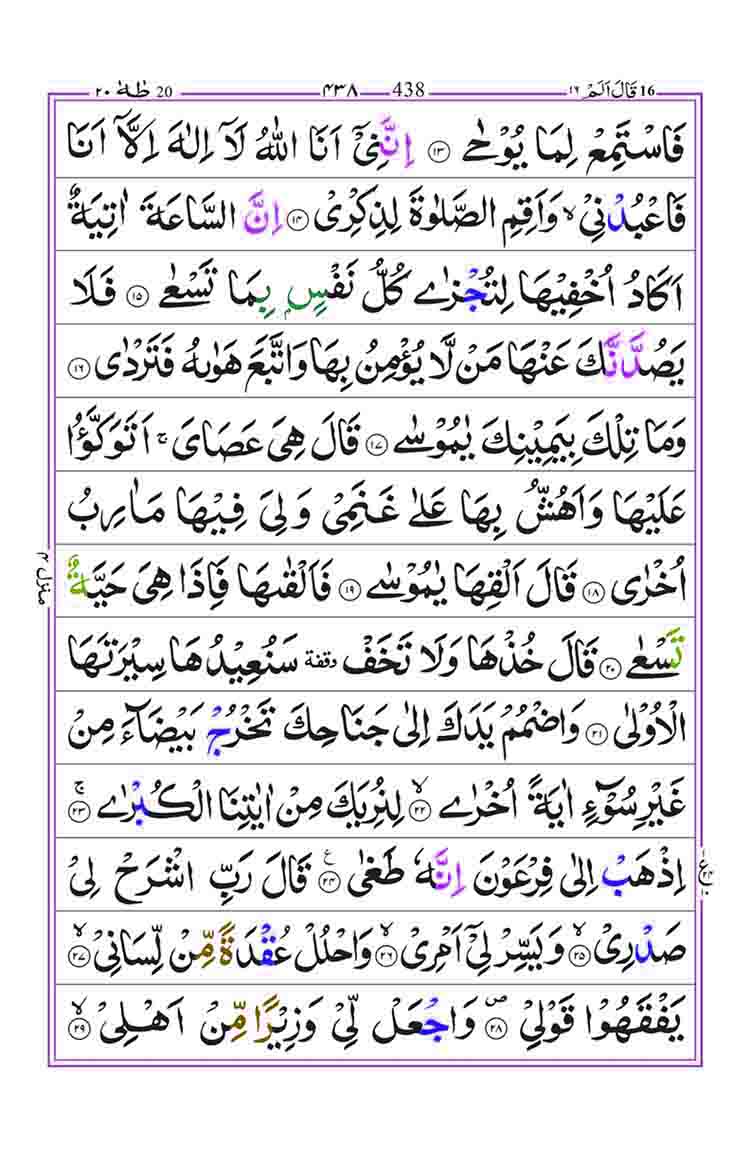 طٰهٰ 20 ٢٠ ٤٣٨ 438 قَالَ اَلَمْ 16 ١٦
فَاسْتَمِعْ لِمَا يُوْحٰى ١٣ اِنَّنِيْۤ اَنَا اللّٰهُ لَاۤ اِلٰهَ اِلَّاۤ اَنَا
فَاعْبُدْنِيْ ۙ وَاَقِمِ الصَّلٰوةَ لِذِكْرِيْ ١٤ اِنَّ السَّاعَةَ اٰتِيَةٌ
اَكَادُ اُخْفِيْهَا لِتُجْزٰى كُلُّ نَفْسٍۭ بِمَا تَسْعٰى ١٥ فَلَا
يَصُدَّنَّكَ عَنْهَا مَنْ لَّا يُؤْمِنُ بِهَا وَاتَّبَعَ هَوٰىهُ فَتَرْدٰى ١٦
وَمَا تِلْكَ بِيَمِيْنِكَ يٰمُوْسٰى ١٧ قَالَ هِيَ عَصَايَ ۚ اَتَوَكَّؤُا
عَلَيْهَا وَاَهُشُّ بِهَا عَلٰى غَنَمِيْ وَلِيَ فِيْهَا مَاٰرِبُ
اُخْرٰى ١٨ قَالَ اَلْقِهَا يٰمُوْسٰى ١٩ فَاَلْقٰىهَا فَاِذَا هِيَ حَيَّةٌ
تَسْعٰى ٢٠ قَالَ خُذْهَا وَلَا تَخَفْ وقفة سَنُعِيْدُهَا سِيْرَتَهَا
الْاُوْلٰى ٢١ وَاضْمُمْ يَدَكَ اِلٰى جَنَاحِكَ تَخْرُجْ بَيْضَآءَ مِنْ
غَيْرِ سُوْٓءٍ اٰيَةً اُخْرٰى ۙ ٢٢ لِنُرِيَكَ مِنْ اٰيٰتِنَا الْكُبْرٰى ۚ ٢٣
اِذْهَبْ اِلٰى فِرْعَوْنَ اِنَّهٗ طَغٰى ع ٢٤ قَالَ رَبِّ اشْرَحْ لِيْ
صَدْرِيْ ۙ ٢٥ وَيَسِّرْ لِيْۤ اَمْرِيْ ۙ ٢٦ وَاحْلُلْ عُقْدَةً مِّنْ لِّسَانِيْ ۙ ٢٧
يَفْقَهُوْا قَوْلِيْ ۪ ٢٨ وَاجْعَلْ لِّيْ وَزِيْرًا مِّنْ اَهْلِيْ ۙ ٢٩
منزل ٤